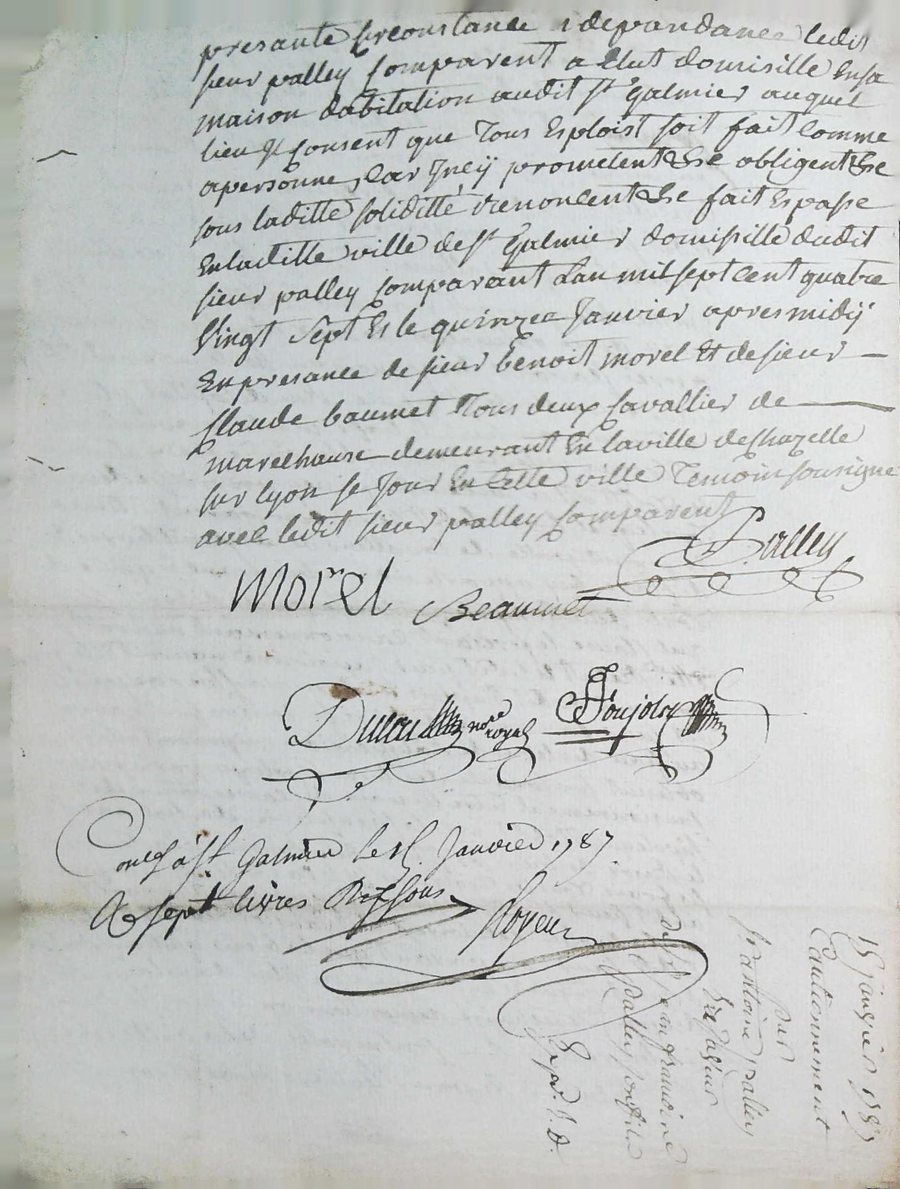 presante sirconstance & depandance ledit
sieur palley Comparent a Elut domisille Ensa
maison dabitation audit St Galmier auquel
lieu Consent que Tous Esploist soit fait Comme
apersonne, Car prometent obligent
sous laditte soliditté renoncent fait Espasse
Enladitte ville de St Galmier domissille dudit
sieur palley Comparant Lan mil sept cent quatre
Vingt sept Es le quinze Janvier apres midÿ
En presance de sieur benoit morel Et de sieur
Claude baumet Tous deux Cavallier de
marechause demeurant En laville de Chazelle
sur lyon se Jour En Cette ville Temoin sousigne
avec ledit sieur palley Comparent
Palley
Morel
Beaumet
nore
royal
Conle à St Galmier le 15 Janvier 1787
R sept livres dix sous
Royeur
15 janvier 1787
Cautionnement
par
Sr antoine palley
de Sr jean
palley son fils